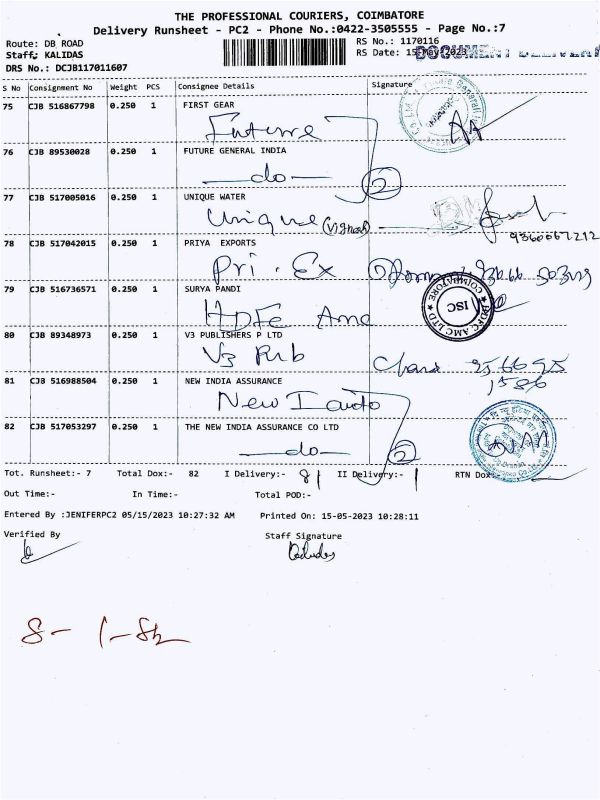 THE PROFESSIONAL COURIERS, COIMBATORE
Delivery Runsheet - PC2 - Phone No.:0422-3505555 - Page No.:7
Route: DB ROAD RS No.: 1170116
Staff: KALIDAS RS Date: 15-May-2023 DOCUMENT DELIVERY
DRS No.: DCJB117011607
S No Consignment No Weight PCS Consignee Details Signature
75 CJB 516867798 0.250 1 FIRST GEAR
Future
76 CJB 89530028 0.250 1 FUTURE GENERAL INDIA
do 2
77 CJB 517005016 0.250 1 UNIQUE WATER
Unique (Vignesh)
9360067212
78 CJB 517042015 0.250 1 PRIYA EXPORTS
Pri . Ex
79 CJB 516736571 0.250 1 SURYA PANDI
HDFC Amc HDFC AMC LTD COIMBATORE ISC
80 CJB 89348973 0.250 1 V3 PUBLISHERS P LTD
V3 Pub
1586
81 CJB 516988504 0.250 1 NEW INDIA ASSURANCE
New India
82 CJB 517053297 0.250 1 THE NEW INDIA ASSURANCE CO LTD
do 2
Tot. Runsheet:- 7 Total Dox:- 82 I Delivery:- 81 II Delivery:- 1 RTN Dox
Out Time:- In Time:- Total POD:-
Entered By :JENIFERPC2 05/15/2023 10:27:32 AM Printed On: 15-05-2023 10:28:11
Verified By Staff Signature